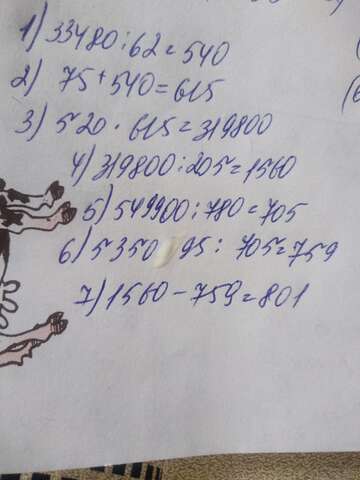 1) 33480 : 62 = 540
2) 75 + 540 = 615
3) 520 · 615 = 319800
4) 319800 : 205 = 1560
5) 549900 : 780 = 705
6) 5350 95 : 705 = 759
7) 1560 - 759 = 801